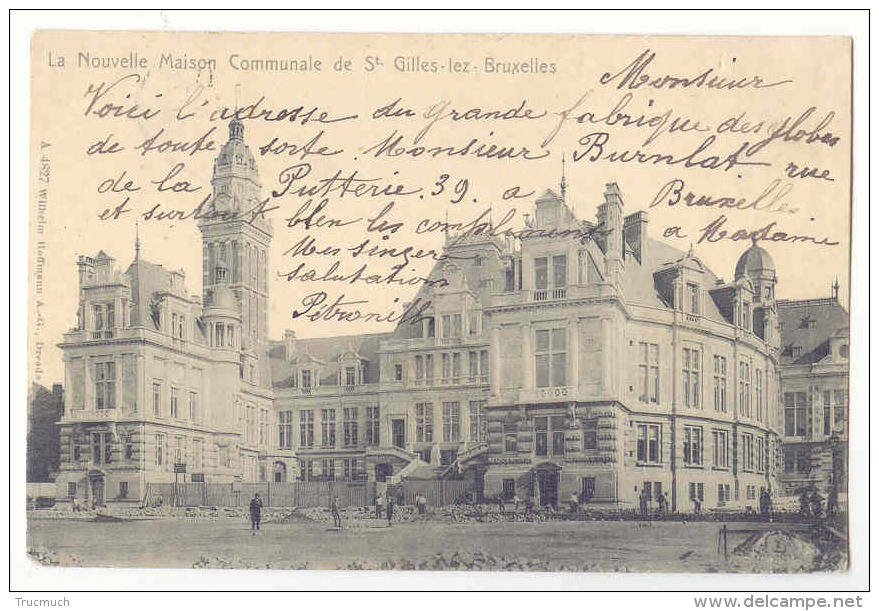 La Nouvelle Maison Communale de St. Gilles-lez-Bruxelles
Monsieur
Voici l'adresse du grande fabrique des globes
de toute sorte. Monsieur Burnlat. rue
de la Putterie. 39. a Bruxelles
et surtout bien les compliments a Madame
Mes singer
salutations
Pétronill
A 4827 Wilhelm Hoffmann A.-G., Dresde
Trucmuch
www.delcampe.net